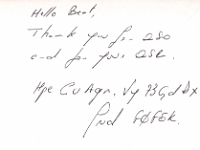 Hello Bent,
Thank you for QSO
and for your QSL.
Hpe Cu Agn. Vy 73 Gd Dx